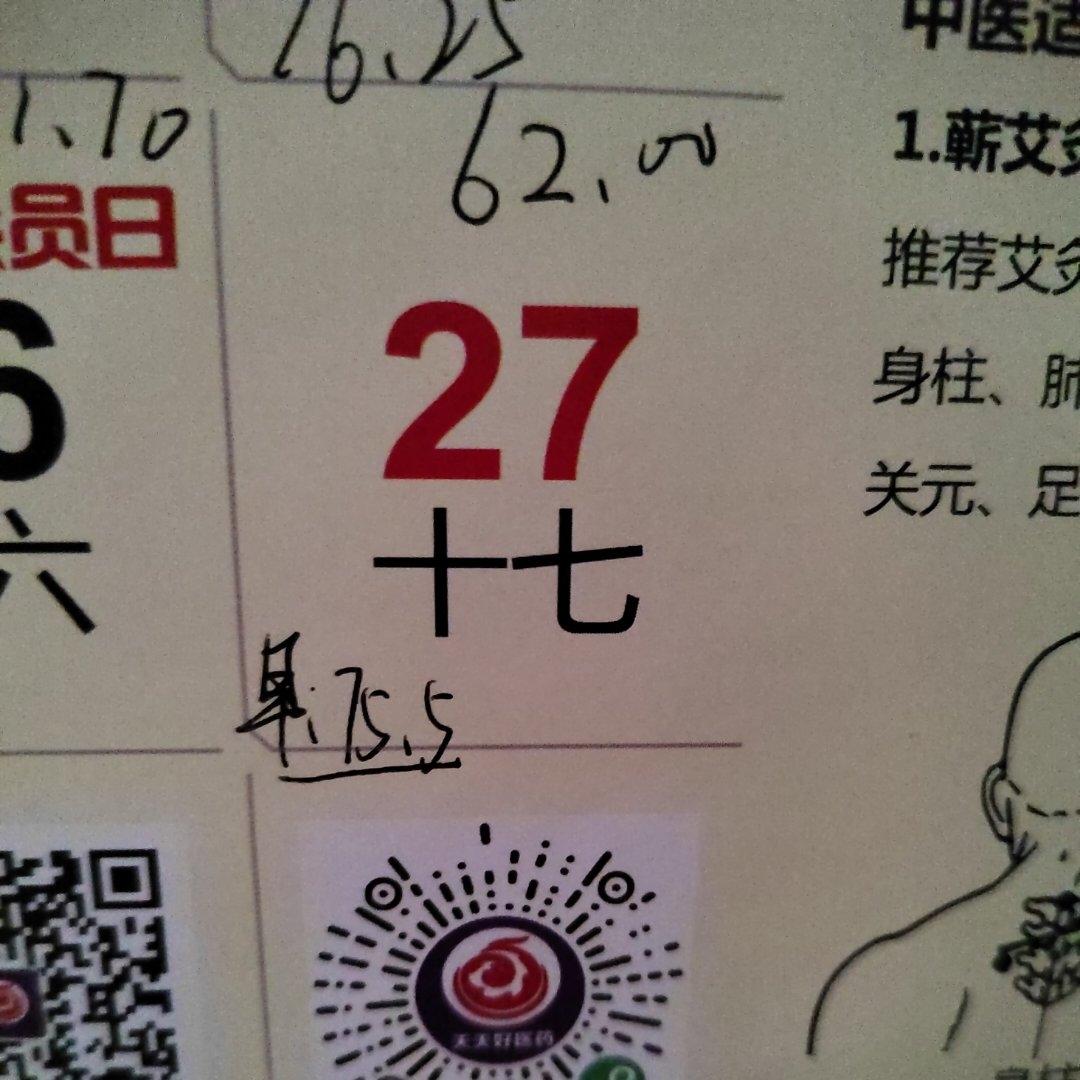 76.25
中医适
1.70
62.00
1.蕲艾灸
员日
推荐艾灸
27
身柱、肺
6
关元、足
十七
六
: 75.5
天天好医药